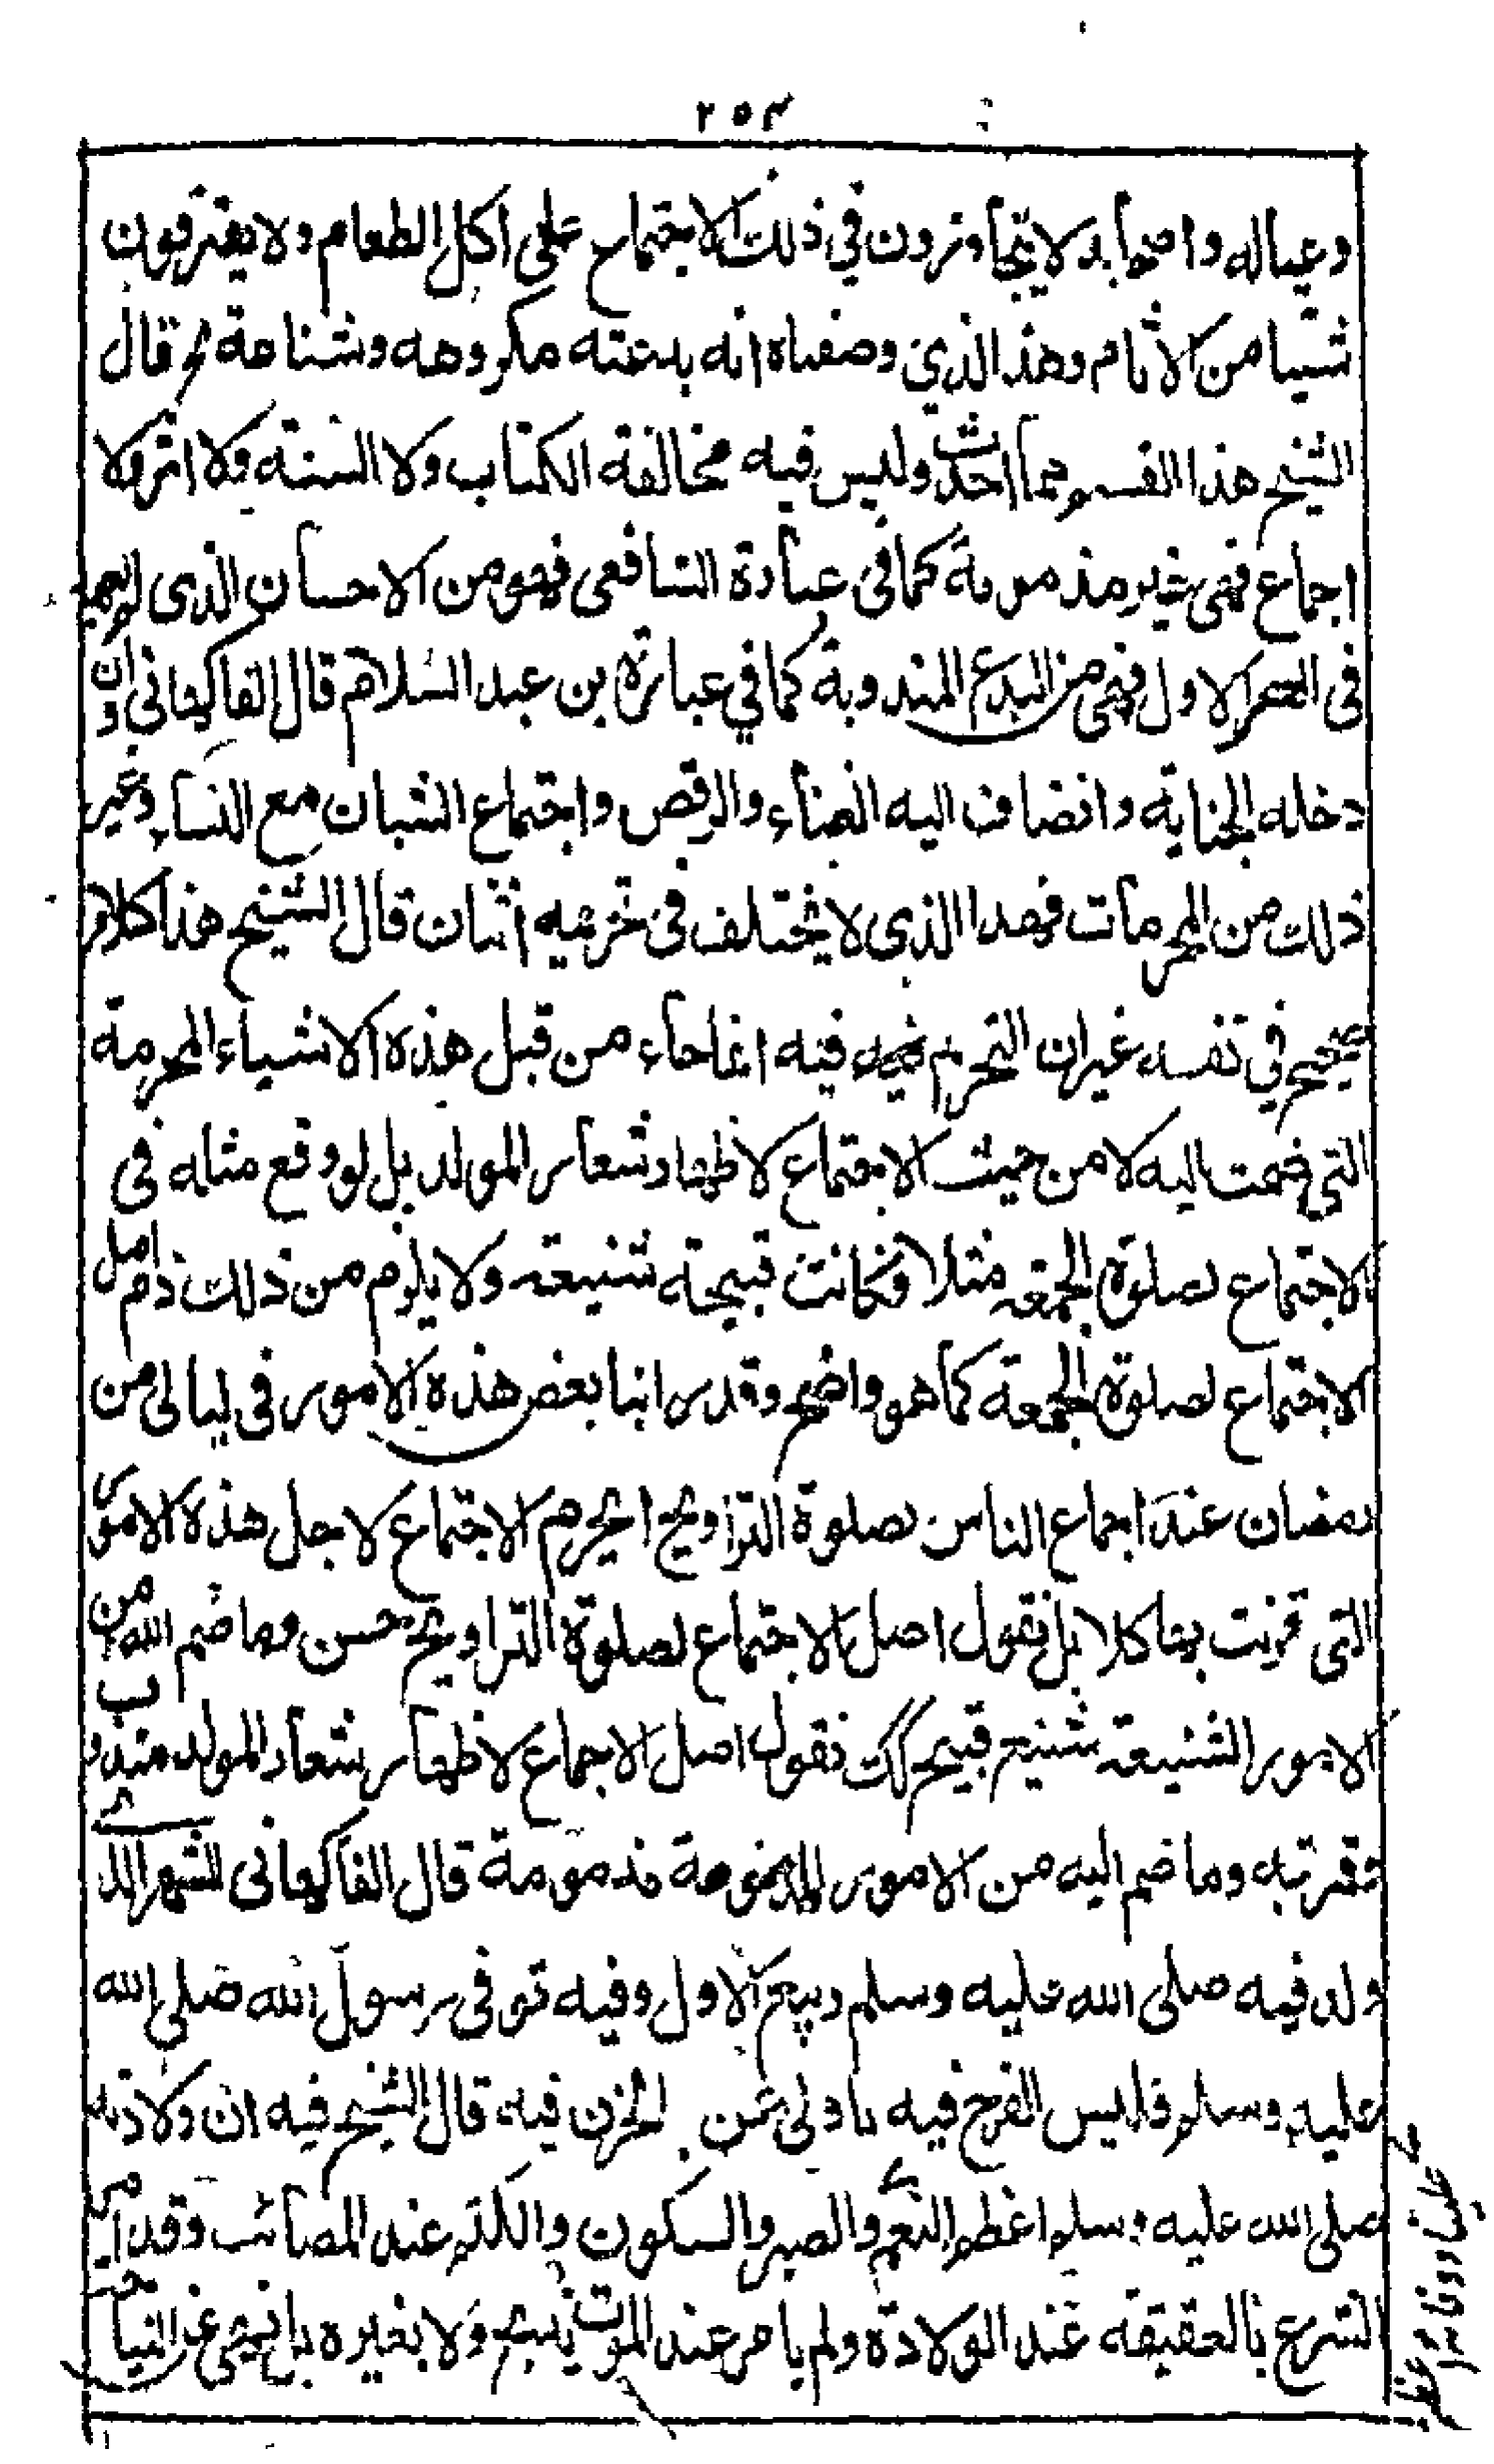 ٢٥٣
وعياله واصحابه لا يتجاوزون في ذلك الاجتماع على اكل الطعام ولا يقترفون
شيبا من الاثام وهذا الذي وصفناه انه بدعته مكروهه وشناعة ثم قال
الشيخ هذا القسم مما احدث وليس فيه مخالفة الكتاب ولا السنة ولا اثر ولا
اجماع فهى غير مذمومة كما فى عبادة الشافعى فهو من الاحسان الذى لم يعهد
فى العصر الاول فهى من البدع المندوبة كما في عبارة بن عبد السلام قال الفاكهانى وان
دخله الجناية وانضاف اليه الغناء والرقص واجتماع الشبان مع النساء وغير
ذلك من المحرمات فهدا الذى لا يختلف فى تحريمه اثنان قال الشيخ هذا كلام
صحيح في نفسه غير ان التحريم فيه انما جاء من قبل هذه الاشياء المحرمة
التي ضمت اليه لا من حيث الاجتماع لاظهار شعار المولد بل لو وقع مثله فى
الاجتماع لصلوة الجمعه مثلا فكانت قبيحة شنيعة ولا يلزم من ذلك ذم اصل
الاجتماع لصلوة الجمعة كما هو واضح وقد راينا بعض هذه الامور فى ليالى من
رمضان عند اجماع الناس لصلوة التراويح ايحرم الاجتماع لاجل هذه الامور
التى قرنت بها كلا بل نقول اصل الاجتماع لصلوة التراويح حسن وما ضم اليه من
الامور الشنيعة شنيع قبيح كك نقول اصل الاجماع لاظهار شعار المولد مندوب
وقربه وما ضم اليه من الامور المذمومة مذمومة قال الفاكهانى الشهر الذى
ولد فيه صلى الله عليه وسلم ربيع الاول وفيه توفى رسول الله صلى الله
عليه وسلم فليس الفرح فيه باولى من الحزن فيه قال الشيخ فيه ان ولادته
صلى الله عليه وسلم اعظم النعم والصبر والسكون والكتم عند المصائب وقد امر
الشرع بالعقيقة عند الولادة ولم يامر عند الموت بذبح ولا بغيره بل نهى عن النياحة
علينا ووفاته